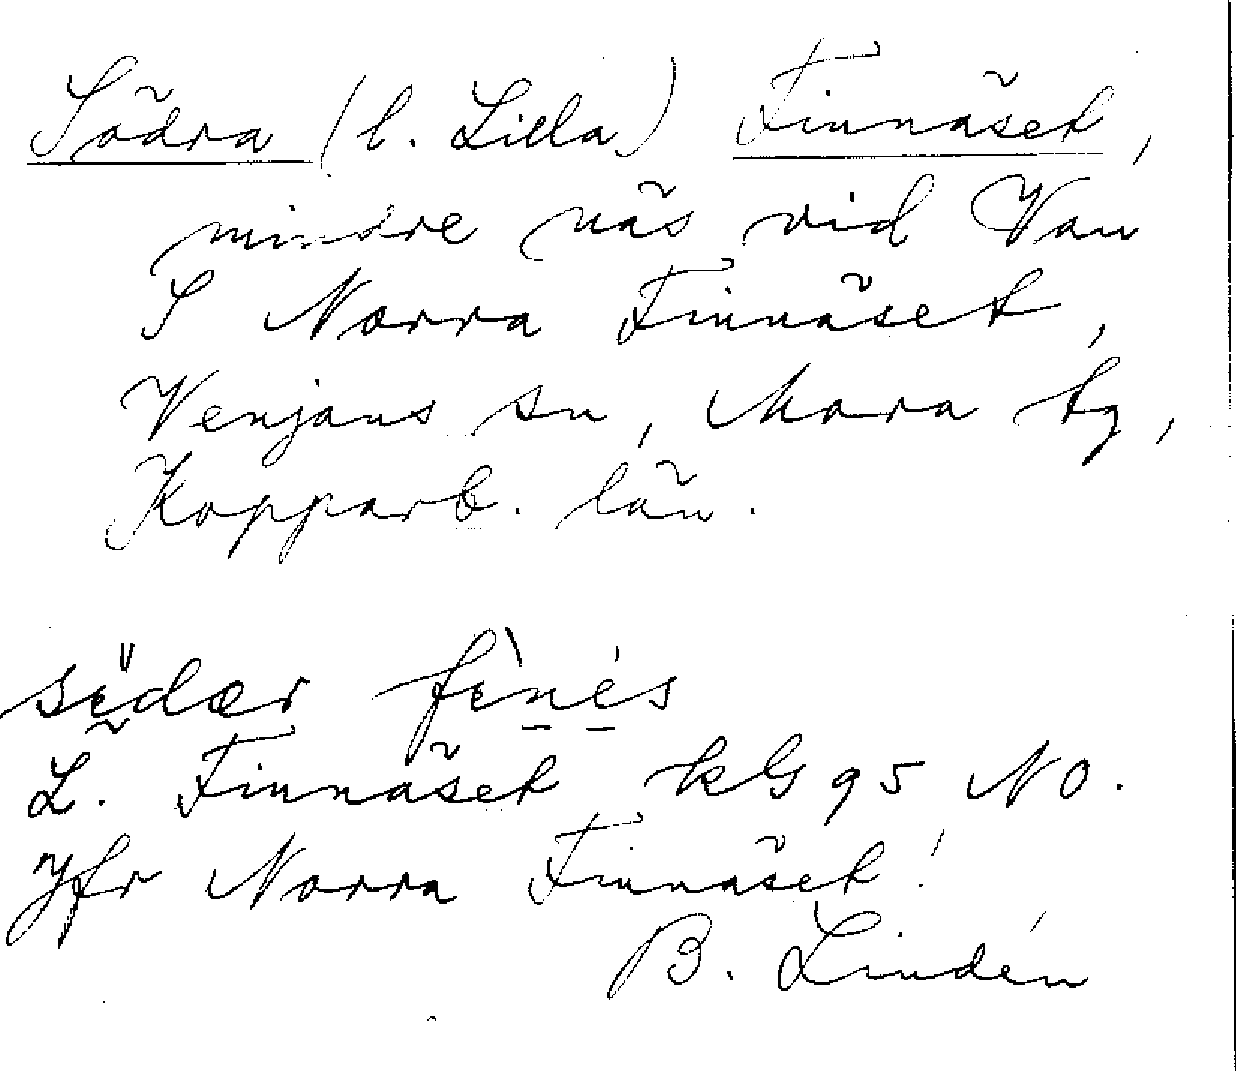 Södra (l. Lilla) Finnäset,
mindre näs vid Van
S Norra Finnäset,
Venjans sn, Mora tg,
Kopparb. län.
södær
L. Finnäset kbl 95 NO.
Jfr Norra Finnäset!
B. Lindén